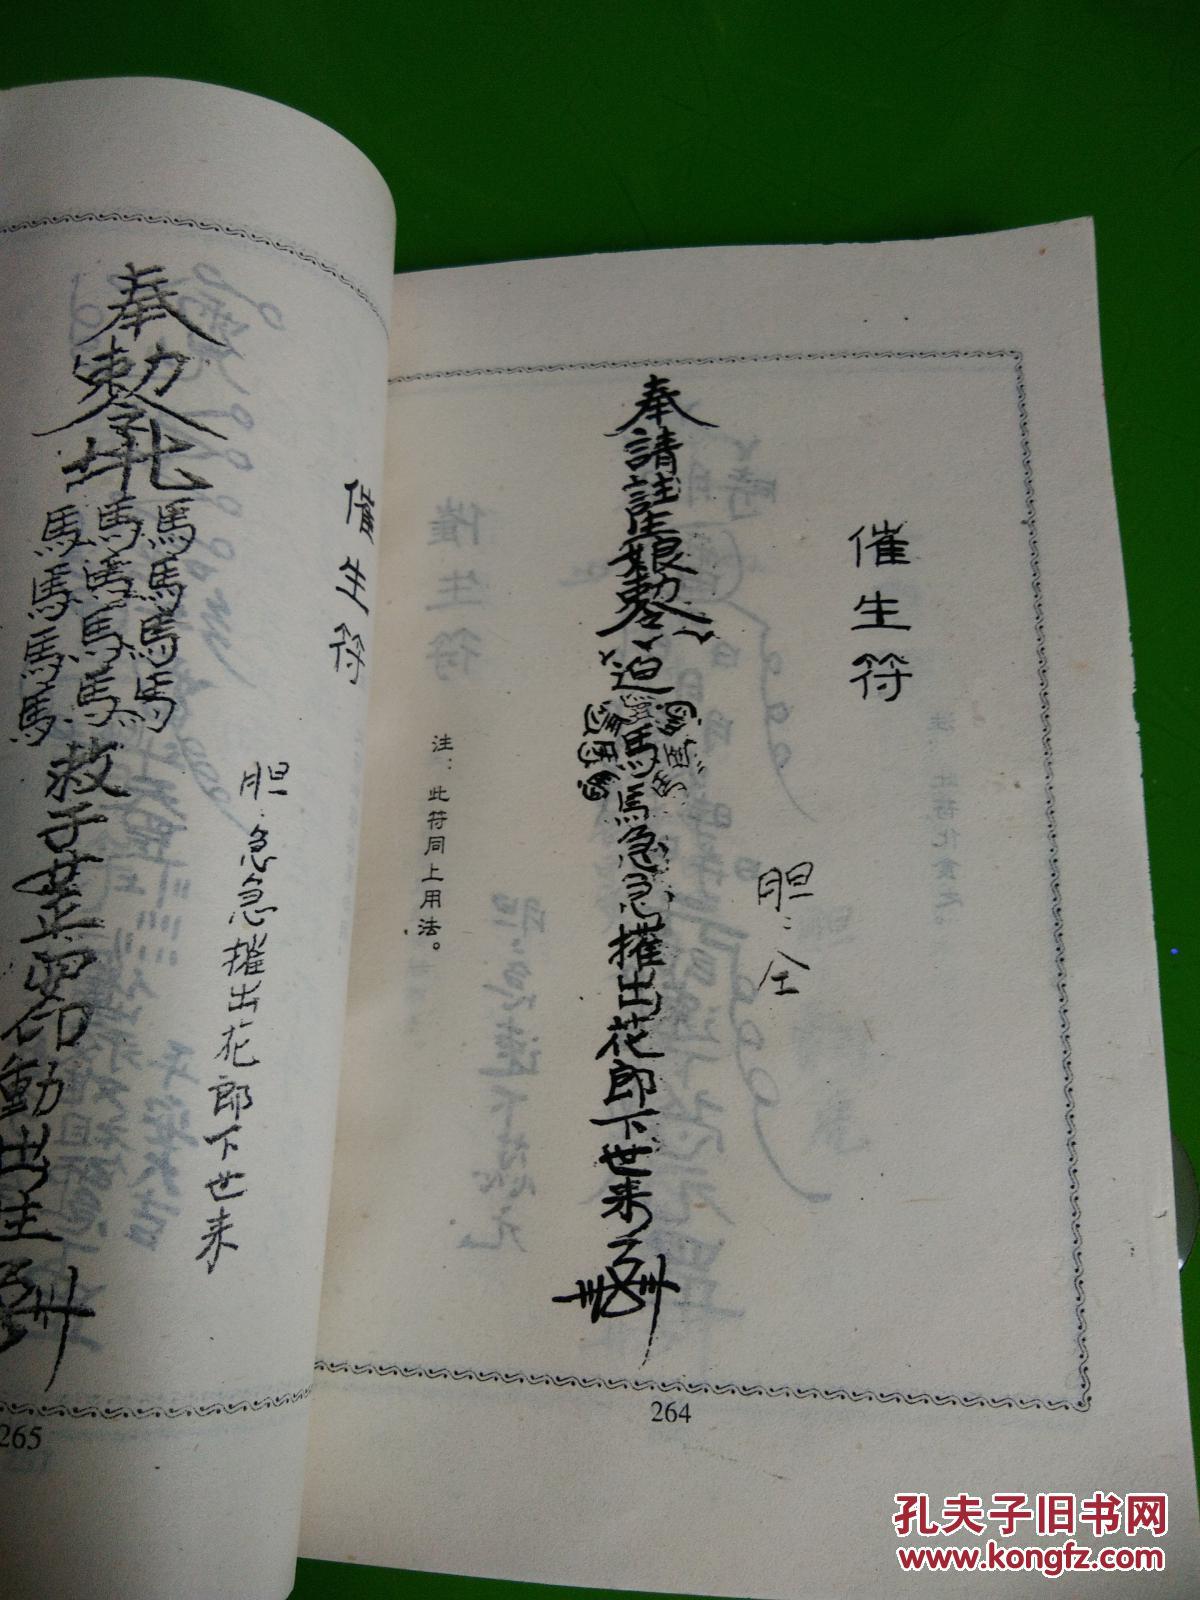 催生符
胆：仝
奉請註生娘勅令
迫馬馬急急摧出花郎下世来
注：此符同上用法。
264
催生符
胆：急急摧出花郎下世来
奉勅令
馬馬馬
馬馬馬
馬馬馬
馬馬馬
救子
印動出生
265
孔夫子旧书网
www.kongfz.com